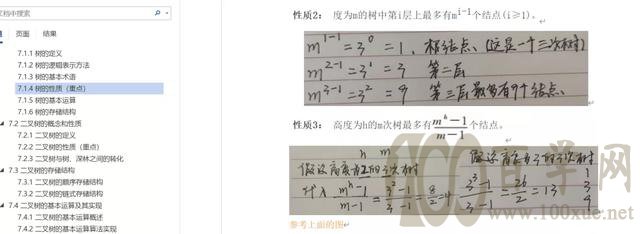 文档中搜索
页面
结果
7.1.1 树的定义
7.1.2 树的逻辑表示方法
7.1.3 树的基本术语
7.1.4 树的性质（重点）
7.1.5 树的基本运算
7.1.6 树的存储结构
7.2 二叉树的概念和性质
7.2.1 二叉树的定义
7.2.2 二叉树的性质（重点）
7.2.3 二叉树与树、森林之间的转化
7.3 二叉树的存储结构
7.3.1 二叉树的顺序存储结构
7.3.2 二叉树的链式存储结构
7.4 二叉树的基本运算及其实现
7.4.1 二叉树的基本运算概述
7.4.2 二叉树的基本运算算法实现
性质2： 度为m的树中第i层上最多有mⁱ⁻¹个结点(i≥1)。
m¹⁻¹=3⁰=1, 根结点、(这是一个三次树)
m²⁻¹=3¹=3 第二层
m³⁻¹=3²=9 第三层最多有9个结点、
性质3： 高度为h的m次树最多有(mʰ-1)/(m-1)个结点。
h m
假设高度为2的3次树
代入 (mʰ-1)/(m-1)=(3²-1)/(3-1)=8/2=4
假设高度为3的3次树
(3³-1)/(3-1)=26/2=13
1
3
9
参考上面的图
100百学网
www.100xue.net